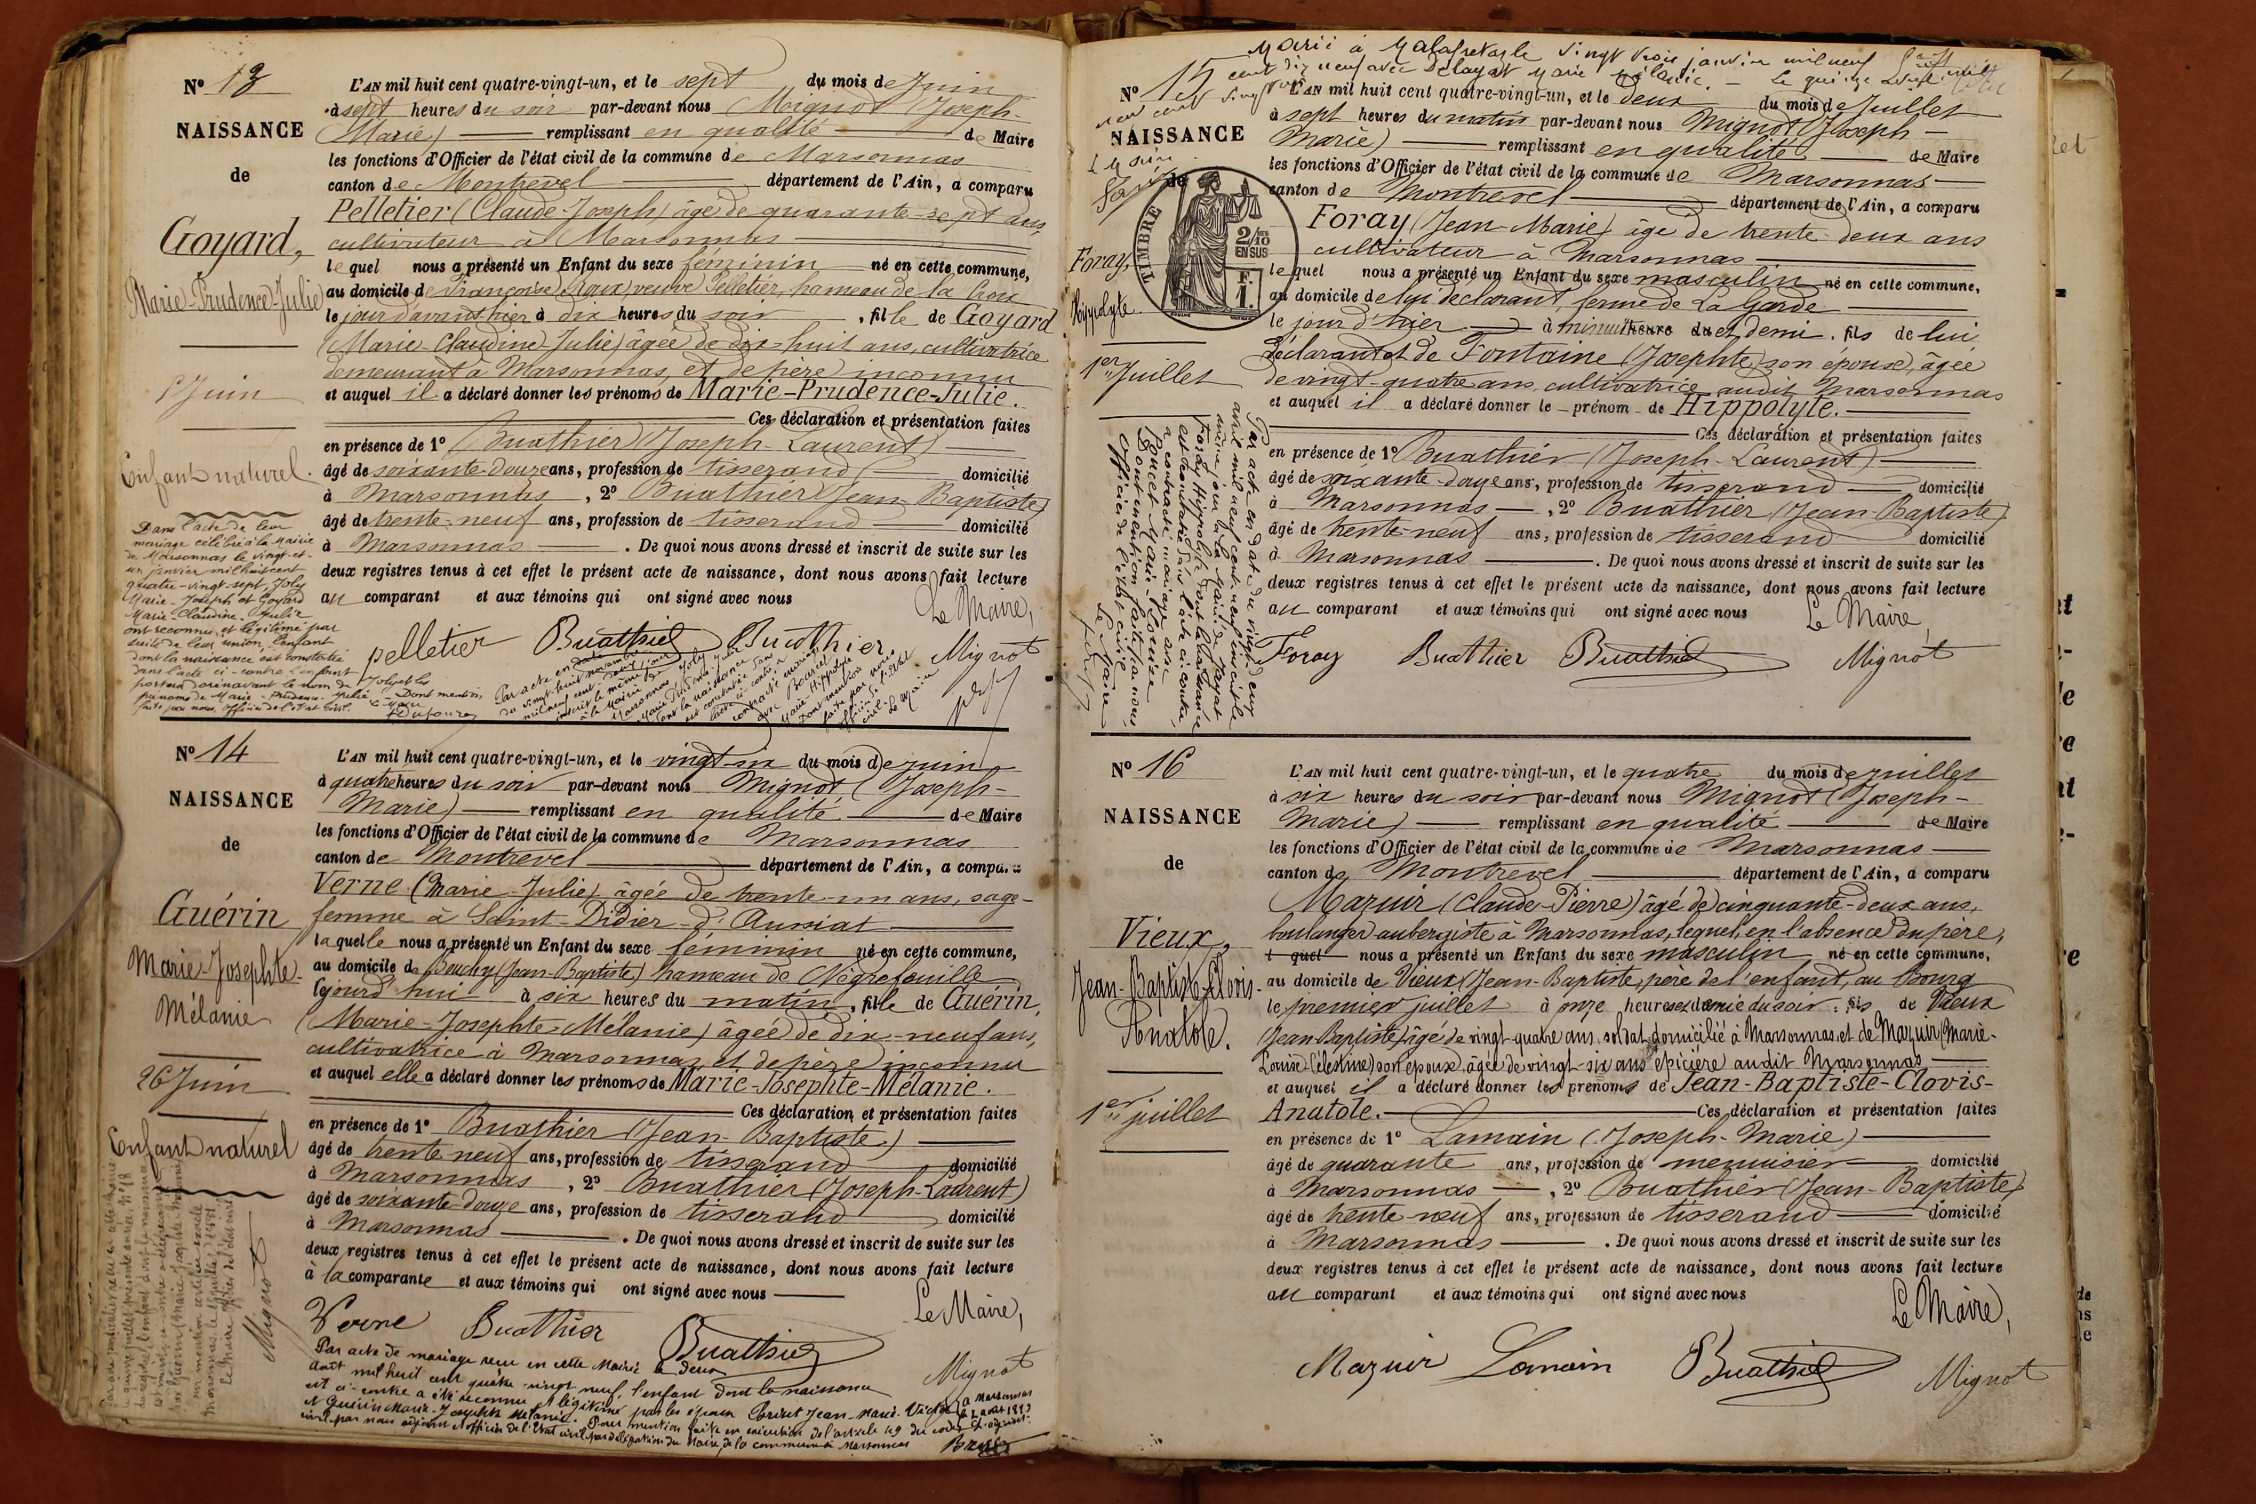 Nº 13
NAISSANCE
de
Goyard,
Marie-Prudence-Julie
5 Juin
Enfant naturel.
Dans l'acte de leur
mariage célébré à la Mairie
de Marsonnas le vingt-et-
un janvier mil huit cent
quatre-vingt-sept, Joly
Marie-Joseph et Goyard
Marie-Claudine-Julie
ont reconnu et légitimé par
suite de leur union, l'enfant
dont la naissance est constatée
dans l'acte ci-contre. L'enfant
portera dorénavant le nom de Joly et les
prénoms de Marie-Prudence-Julie. Dont mention
faite par nous, officier de l'état civil. Le Maire
Dufour
L'AN mil huit cent quatre-vingt-un, et le sept du mois de Juin
à sept heures du soir par-devant nous Mignot (Joseph-
Marie) remplissant en qualité de Maire
les fonctions d'Officier de l'état civil de la commune de Marsonnas
canton de Montrevel département de l'Ain, a comparu
Pelletier (Claude-Joseph) âgé de quarante-sept ans,
cultivateur à Marsonnas
lequel nous a présenté un Enfant du sexe féminin né en cette commune,
au domicile de Françoise Roux, veuve Pelletier, hameau de la Croix
le jour d'avant hier à dix heures du soir, fille de Goyard
(Marie Claudine Julie) âgée de dix-huit ans, cultivatrice
demeurant à Marsonnas, et de père inconnu
et auquel il a déclaré donner les prénoms de Marie-Prudence-Julie.
Ces déclaration et présentation faites
en présence de 1º Buathier (Joseph-Laurent)
âgé de soixante-douze ans, profession de tisserand domicilié
à Marsonnas, 2º Buathier (Jean-Baptiste)
âgé de trente-neuf ans, profession de tisserand domicilié
à Marsonnas. De quoi nous avons dressé et inscrit de suite sur les
deux registres tenus à cet effet le présent acte de naissance, dont nous avons fait lecture
au comparant et aux témoins qui ont signé avec nous
Le Maire,
pelletier Buathier Buathier Mignot
Par acte en date
du vingt huit novembre
mil neuf cent
inscrit le même jour
à la Mairie de
Marsonnas Joly
Marie Prudence Julie
dont la naissance
est constatée dans
l'acte ci-contre a
contracté mariage
avec
Marie-Hippolyte
Dont mention
faite par nous
officier de l'état
civil. Le Maire
Nº 14
NAISSANCE
de
Guérin
Marie-Josephte-
Mélanie
26 Juin
Enfant naturel
Mignot
L'AN mil huit cent quatre-vingt-un, et le vingt-six du mois de juin
à quatre heures du soir par-devant nous Mignot (Joseph-
Marie) remplissant en qualité de Maire
les fonctions d'Officier de l'état civil de la commune de Marsonnas
canton de Montrevel département de l'Ain, a comparu
Verne (Marie-Julie) âgée de trente-un ans, sage-
femme à Saint-Didier-d'Aussiat
laquelle nous a présenté un Enfant du sexe féminin né en cette commune,
au domicile de (Jean-Baptiste) hameau de Négrefeuille
Cejourd'hui à six heures du matin, fille de Guérin,
(Marie-Josephte-Mélanie) âgée de dix-neuf ans,
cultivatrice à Marsonnas, et de père inconnu
et auquel elle a déclaré donner les prénoms de Marie-Josephte-Mélanie.
Ces déclaration et présentation faites
en présence de 1º Buathier (Jean-Baptiste)
âgé de trente-neuf ans, profession de tisserand domicilié
à Marsonnas, 2º Buathier (Joseph-Laurent)
âgé de soixante-douze ans, profession de tisserand domicilié
à Marsonnas. De quoi nous avons dressé et inscrit de suite sur les
deux registres tenus à cet effet le présent acte de naissance, dont nous avons fait lecture
à la comparante et aux témoins qui ont signé avec nous
Le Maire,
Verne Buathier Buathier Mignot
Par acte de mariage reçu en cette Mairie le deux
août mil huit cent quatre-vingt neuf, l'enfant dont la naissance
est ci-contre a été reconnu et légitimé par les époux Jean-Marie-Victor
et Guérin Marie-Josephte Mélanie. Pour mention faite en exécution de l'article 49 du code
civil par nous adjoint officier de l'état civil par délégation du Maire de la commune de Marsonnas
Marié à Malafretaz le vingt trois janvier mil neuf
cent dix neuf avec Delayat Marie Mélanie. Le quinze
Nº 15
NAISSANCE
Le Maire
de
TIMBRE
2/10
EN SUS
F.
1.
Foray,
Hippolyte.
1er Juillet
Par acte en date du vingt-deux
avril mil neuf cent neuf inscrit le
même jour à la Mairie de Jayat
Foray Hippolyte dont la naissance
est constatée dans l'acte ci-contre,
a contracté mariage avec
Poncet Marie-Louise
Dont mention faite par nous,
officier de l'état civil
Le Maire
L'AN mil huit cent quatre-vingt-un, et le deux du mois de Juillet
à sept heures du matin par-devant nous Mignot (Joseph-
Marie) remplissant en qualité de Maire
les fonctions d'Officier de l'état civil de la commune de Marsonnas
canton de Montrevel département de l'Ain, a comparu
Foray (Jean-Marie) âgé de trente-deux ans
cultivateur à Marsonnas
lequel nous a présenté un Enfant du sexe masculin né en cette commune,
au domicile de lui déclarant, ferme de La Garde
le jour d'hier à minuit heure du et demi. fils de lui
déclarant et de Fontaine (Josephte) son épouse, âgée
de vingt-quatre ans, cultivatrice audit Marsonnas
et auquel il a déclaré donner le prénom de Hippolyte.
Ces déclaration et présentation faites
en présence de 1º Buathier (Joseph-Laurent)
âgé de soixante-douze ans, profession de tisserand domicilié
à Marsonnas, 2º Buathier (Jean-Baptiste)
âgé de trente-neuf ans, profession de tisserand domicilié
à Marsonnas. De quoi nous avons dressé et inscrit de suite sur les
deux registres tenus à cet effet le présent acte de naissance, dont nous avons fait lecture
au comparant et aux témoins qui ont signé avec nous
Le Maire,
Foray Buathier Buathier Mignot
Nº 16
NAISSANCE
de
Vieux,
Jean-Baptiste-Clovis-
Anatole.
1er juillet
L'AN mil huit cent quatre-vingt-un, et le quatre du mois de juillet
à six heures du soir par-devant nous Mignot (Joseph-
Marie) remplissant en qualité de Maire
les fonctions d'Officier de l'état civil de la commune de Marsonnas
canton de Montrevel département de l'Ain, a comparu
Mazuir (Claude-Pierre) âgé de cinquante-deux ans,
boulanger-aubergiste à Marsonnas, lequel, en l'absence du père,
l quel nous a présenté un Enfant du sexe masculin né en cette commune,
au domicile de Vieux (Jean-Baptiste, père de l'enfant, au Bourg
le premier juillet à onze heures et demie du soir. fils de Vieux
(Jean Baptiste) âgé de vingt-quatre ans, soldat domicilié à Marsonnas et de Mazuir (Marie-
Louise Célestine) son épouse, âgée de vingt-six ans épicière audit Marsonnas
et auquel il a déclaré donner les prénoms de Jean-Baptiste-Clovis-
Anatole. Ces déclaration et présentation faites
en présence de 1º Lamain (Joseph-Marie)
âgé de quarante ans, profession de menuisier domicilié
à Marsonnas, 2º Buathier (Jean-Baptiste)
âgé de trente-neuf ans, profession de tisserand domicilié
à Marsonnas. De quoi nous avons dressé et inscrit de suite sur les
deux registres tenus à cet effet le présent acte de naissance, dont nous avons fait lecture
au comparant et aux témoins qui ont signé avec nous
Le Maire,
Mazuir Lamain Buathier Mignot